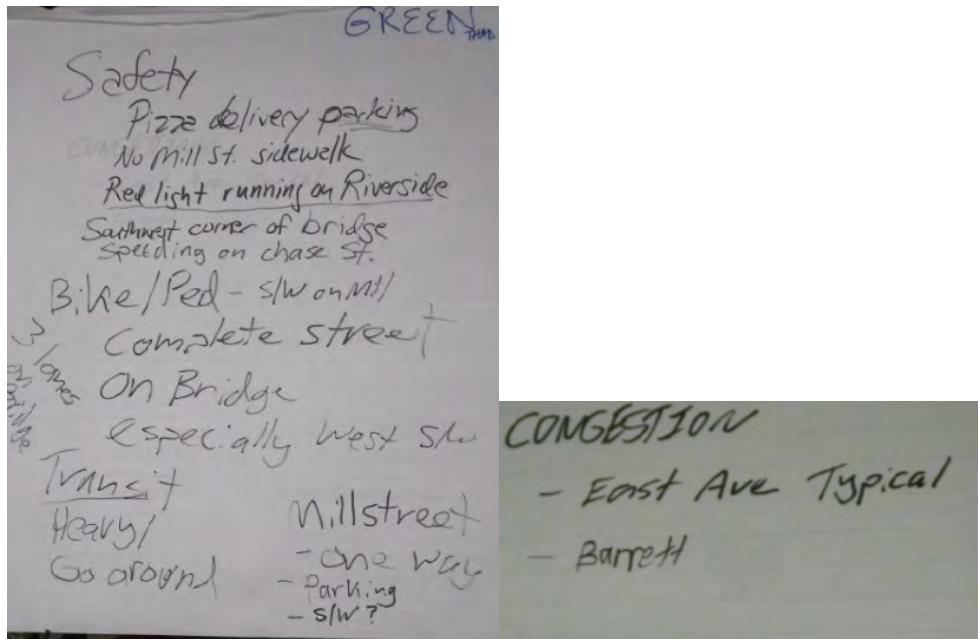 GREEN
THAD
Safety
Pizza delivery parking
No Mill St. sidewalk
Red light running on Riverside
Southwest corner of bridge
Speeding on chase St.
Bike/Ped - S/W on Mill
Complete street
On Bridge
especially West S/W
3 lanes
on bridge
Transit
Heavy/
Go around
Millstreet
- One way
- Parking
- S/W?
CONGESTION
- East Ave Typical
- Barrett